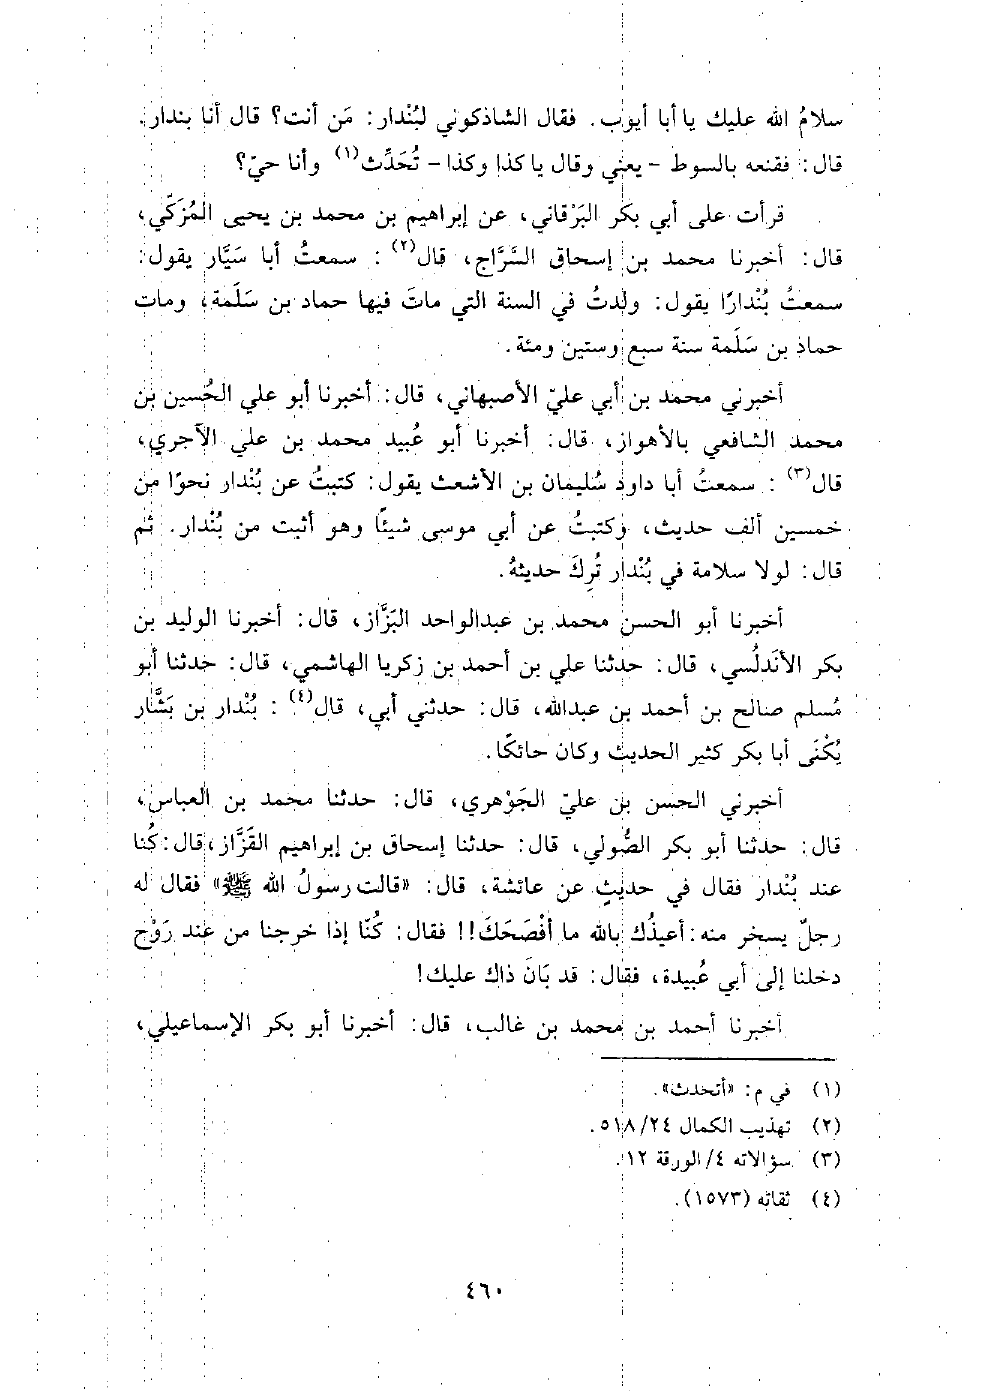 سلامُ الله عليك يا أبا أيوب. فقال الشاذكوني لبُنْدار: مَن أنت؟ قال أنا بندار.
قال: فقنعه بالسوط - يعني وقال يا كذا وكذا - تُحَدِّث(١) وأنا حيّ؟
قرأت على أبي بكر البَرْقاني، عن إبراهيم بن محمد بن يحيى المُزَكِّي،
قال: أخبرنا محمد بن إسحاق السَّرَّاج، قال(٢): سمعتُ أبا سَيَّار يقول:
سمعتُ بُنْدارًا يقول: ولدتُ في السنة التي ماتَ فيها حماد بن سَلَمة، ومات
حماد بن سَلَمة سنة سبع وستين ومئة.
أخبرني محمد بن أبي عليّ الأصبهاني، قال: أخبرنا أبو علي الحُسين بن
محمد الشافعي بالأهواز، قال: أخبرنا أبو عُبيد محمد بن علي الآجري،
قال(٣): سمعتُ أبا داود سُليمان بن الأشعث يقول: كتبتُ عن بُنْدار نحوًا من
خمسين ألف حديث، وكتبتُ عن أبي موسى شيئًا وهو أثبت من بُنْدار. ثم
قال: لولا سلامة في بُنْدار تُرِكَ حديثهُ.
أخبرنا أبو الحسن محمد بن عبدالواحد البَزَّاز، قال: أخبرنا الوليد بن
بكر الأندلُسي، قال: حدثنا علي بن أحمد بن زكريا الهاشمي، قال: حدثنا أبو
مُسلم صالح بن أحمد بن عبدالله، قال: حدثني أبي، قال(٤): بُنْدار بن بَشَّار
يُكْنَى أبا بكر كثير الحديث وكان حائكًا.
أخبرني الحسن بن عليّ الجَوْهري، قال: حدثنا محمد بن العباس،
قال: حدثنا أبو بكر الصُّولي، قال: حدثنا إسحاق بن إبراهيم القَزَّاز، قال: كُنا
عند بُنْدار فقال في حديثٍ عن عائشة، قال: «قالت رسولُ الله ﷺ» فقال له
رجلٌ يسخر منه: أعيذُك بالله ما أفْصَحَكَ!! فقال: كُنّا إذا خرجنا من عند رَوْح
دخلنا إلى أبي عُبيدة، فقال: قد بَانَ ذاك عليك!
أخبرنا أحمد بن محمد بن غالب، قال: أخبرنا أبو بكر الإسماعيلي،
(١) في م: «أتحدث».
(٢) تهذيب الكمال ٢٤/ ٥١٨.
(٣) سؤالاته ٤/ الورقة ١٢.
(٤) ثقاته (١٥٧٣).
٤٦٠